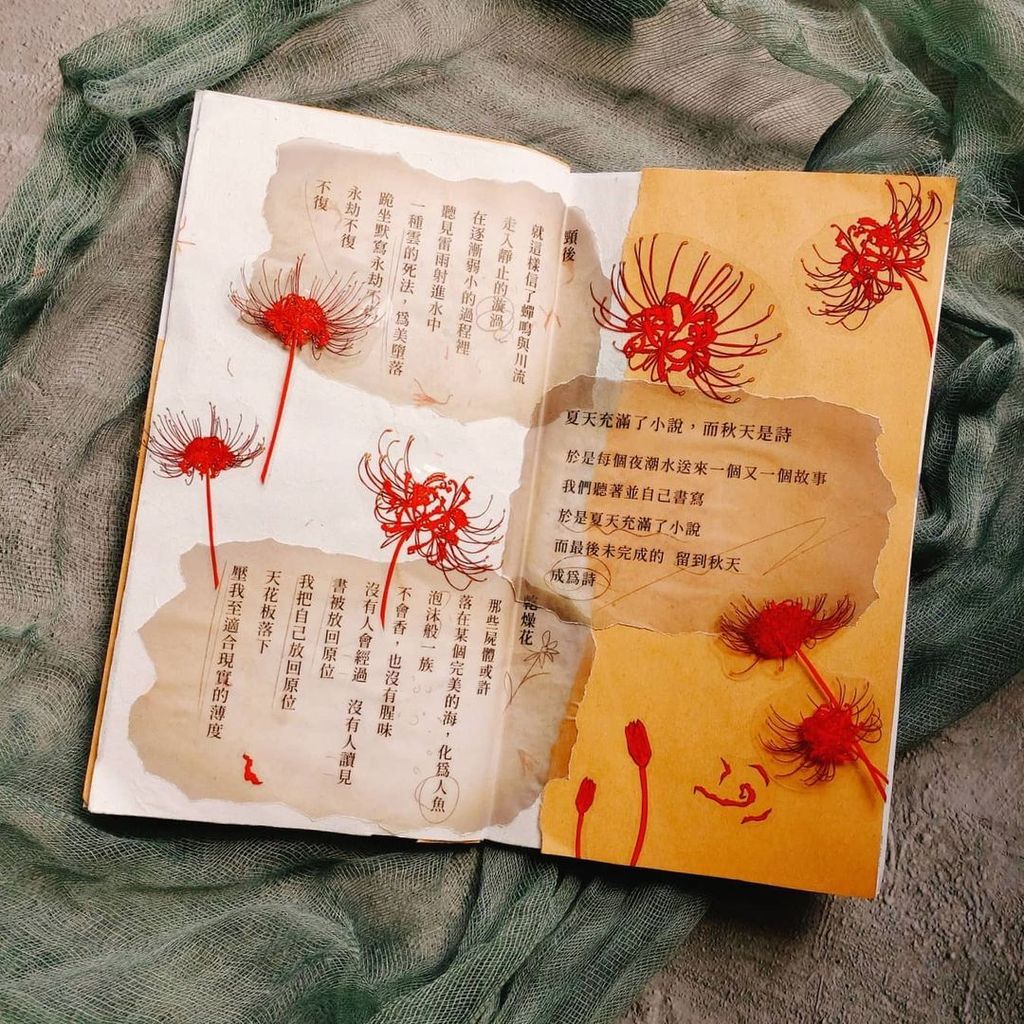 後
就這樣信了蟬鳴與川流
走入靜止的漩渦
在逐漸弱小的過程裡
聽見雷雨射進水中
一種雲的死法，爲美墮落
跪坐默寫永劫不
永劫不復
不復
乾燥花
那些屍體或許
落在某個完美的海，化爲人魚
泡沫般一族
不會香，也沒有腥味
沒有人會經過　沒有人讀見
書被放回原位
我把自己放回原位
天花板落下
壓我至適合現實的薄度
夏天充滿了小說，而秋天是詩
於是每個夜潮水送來一個又一個故事
我們聽著並自己書寫
於是夏天充滿了小說
而最後未完成的　留到秋天
成爲詩